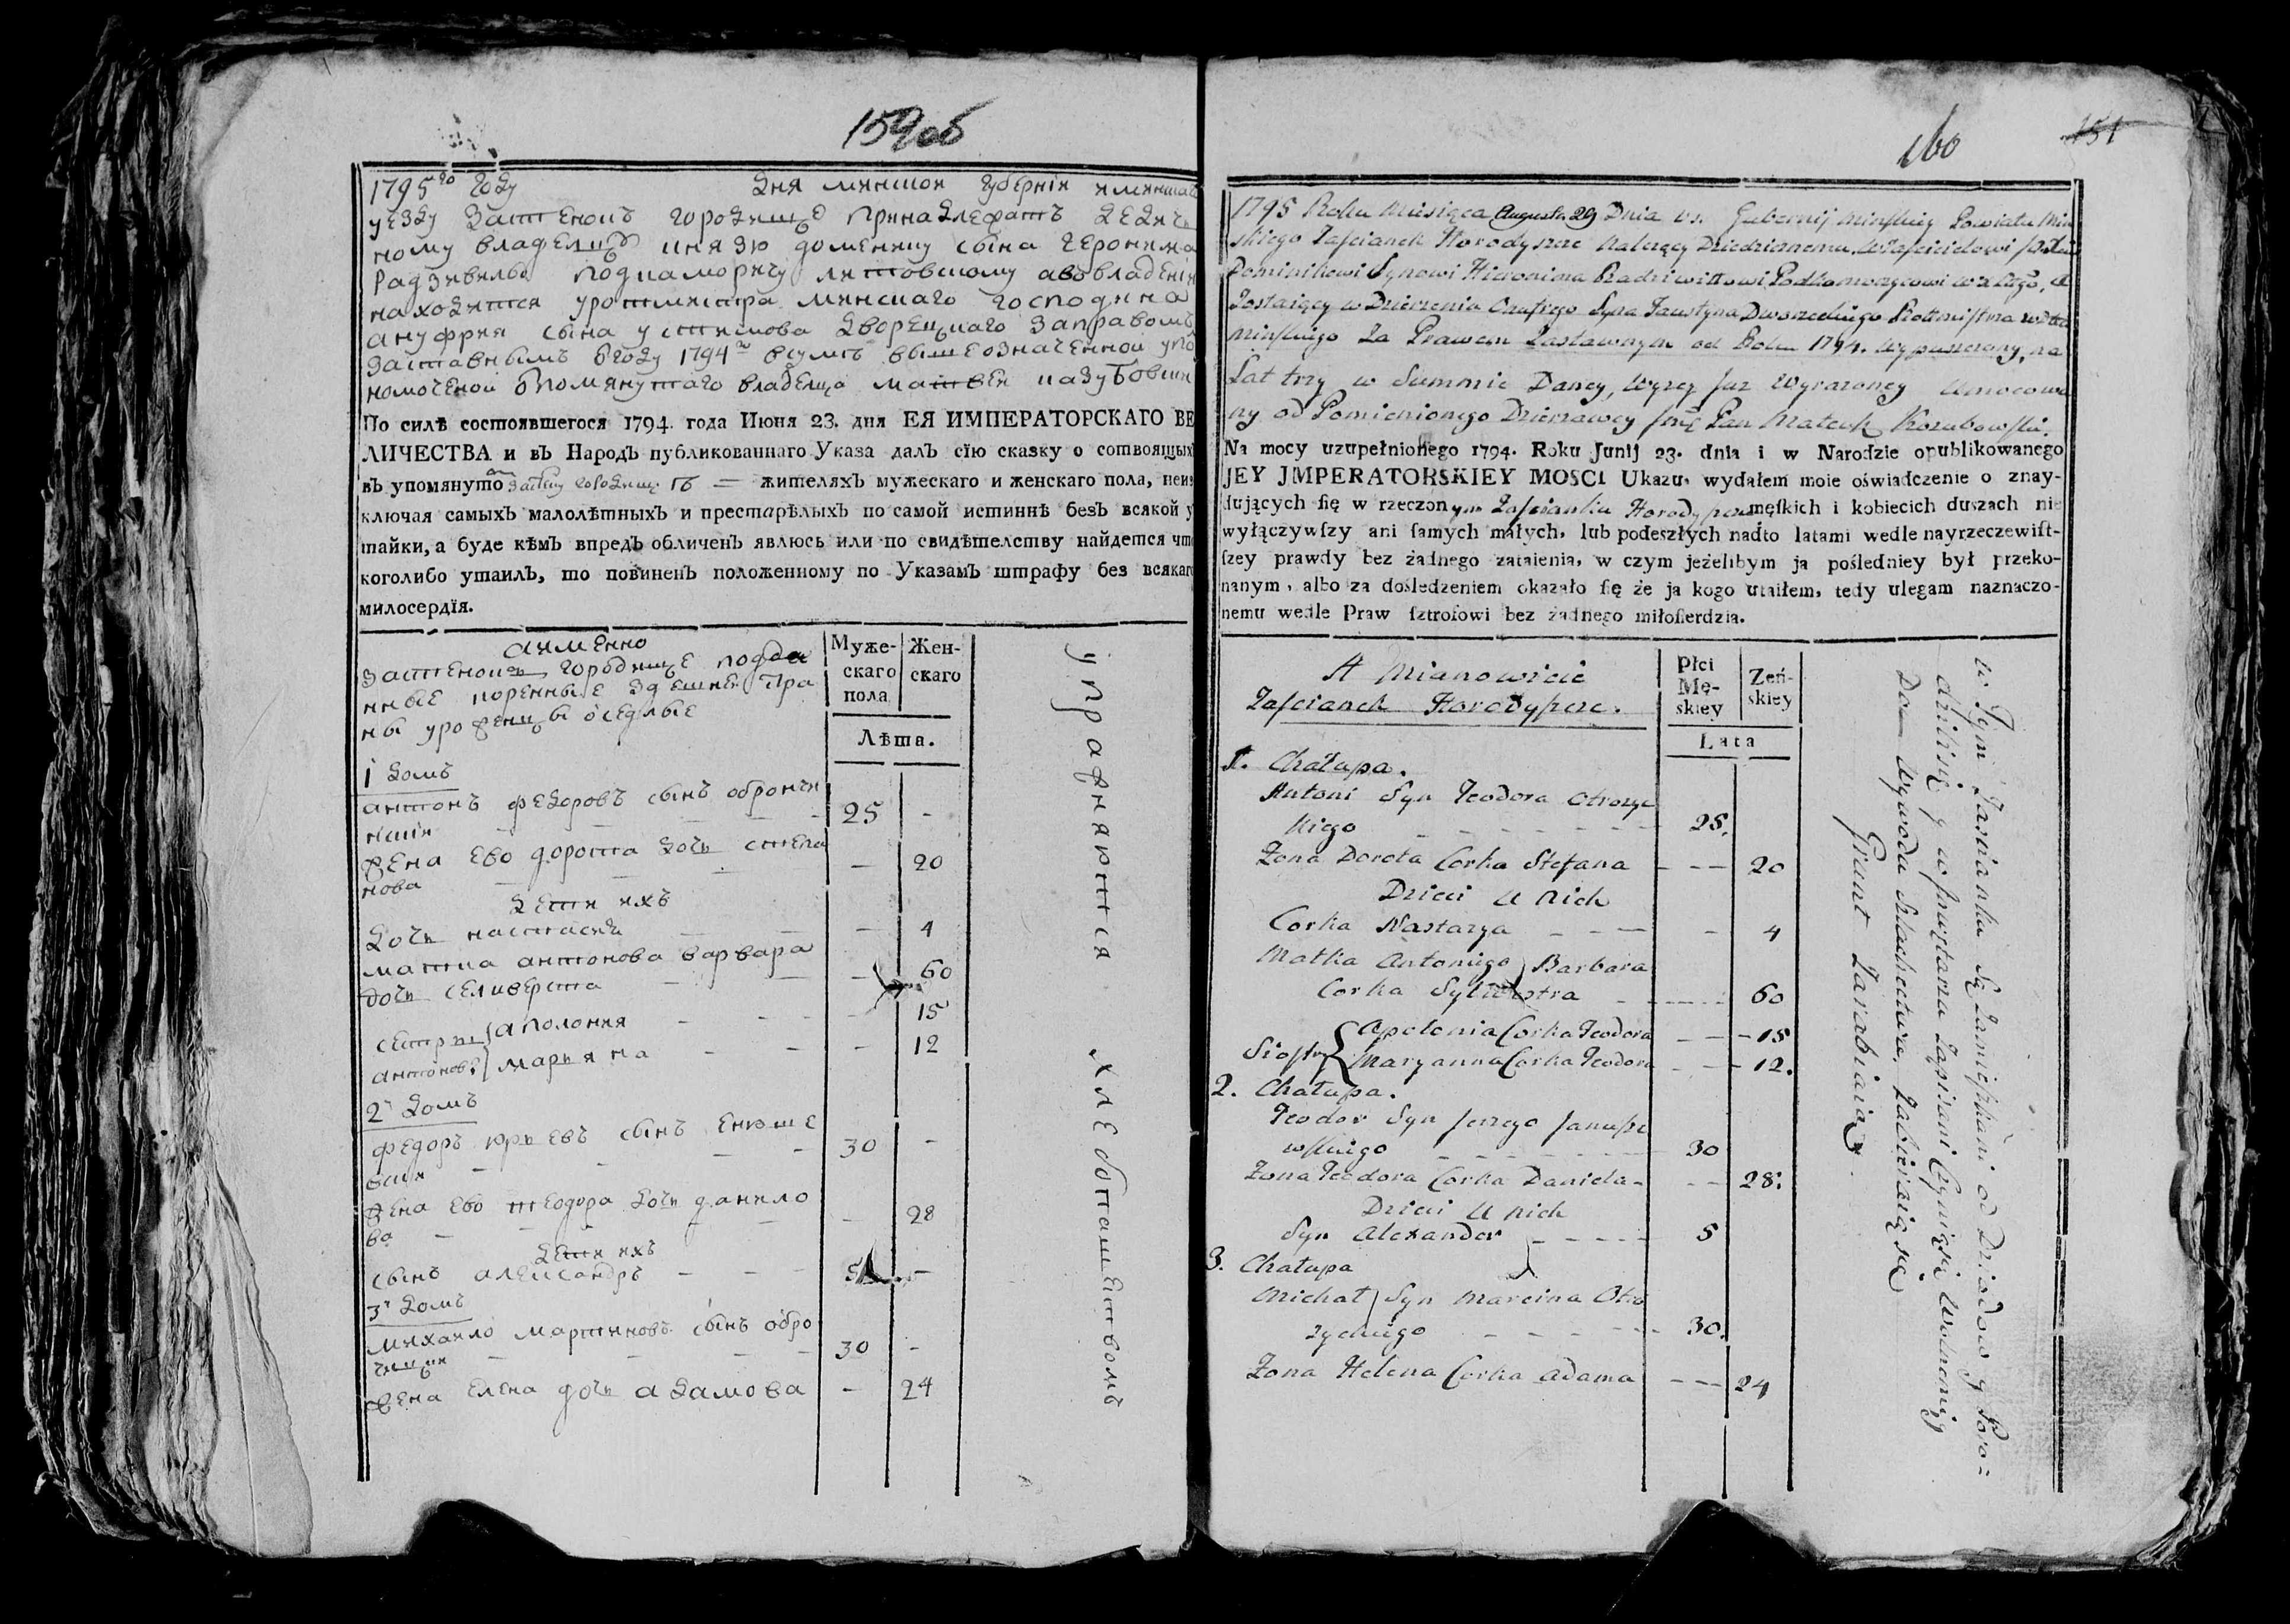 159об
1795го году дня минской губернии иминскаго
уезду застенокъ городище принадлежатъ дедич
ному владельцу князю доменику сына геронима
Радзивилы подкаморичу литовскому авовладении
находится уротмистра минскаго господина
ануфрия сына устинова дворецкаго заправомъ
заставнымъ 1794го вышеозначенной упо
номоченой упомянутаго владельца матвеи казубовски
По силѣ состоявшегося 1794. года Июня 23. дня ЕЯ ИМПЕРАТОРСКАГО ВЕ
ЛИЧЕСТВА и въ Народъ публикованнаго Указа далъ сїю сказку о сотвоящыхъ
въ упомянуто застену городище — жителяхъ мужескаго и женскаго пола, неиз
ключая самыхъ малолѣтныхъ и престарѣлыхъ по самой истиннѣ безъ всякой у
тайки, а буде кѣмъ впредъ обличенъ явлюсь или по свидѣтелству найдется что
коголибо утаилъ, то повиненъ положенному по Указамъ штрафу без всякаго
милосердїя.
аимЕнно
застенокъ городище подда
нные коренные здешнеи стра
ны уроженцы оседлые
Муже-
скаго
пола
Жен-
скаго
Лѣта.
1 домъ
антонъ федоровъ сынъ оброжи
нскии — — — 25 -
жена ево дорота дочь степа
нова — — — — 20
дети ихъ
дочь настасия — — — 4
матка антонова варвара
дочь селиверста — — — 60
сестры аполония — — — 15
антонов: марьяна — — — 12
2й домъ
федоръ юрьевъ сынъ енюше
вски — — — 30 -
жена ево теодора дочь данило
ва — — — - 28
дети ихъ
сынъ александръ — — — 5 —
3й домъ
михаило мартиновъ сынъ обро
— — — 30 -
жена елена дочь адамова — 24
упражняются хлебопашеством
160
151
1795 Roku Miesiąca Augusta 29 Dnia w. Gubernij Minskiey Powiatu Min
skiego Zascianek Horodyszcze Należący Dziedzicznemu Właścicielowi
Dominikowi Synowi Hieronima Radziwiłłowi Podkomorzycowi W X Lit̃go, a
Zostaiący w Dzierżeniu Onufrego Syna Faustyna Dworzeckiego Rotmistrza wdtwa
Minskiego Za Prawem Zastawnym od Roku 1794. wypuszczony, na
Lat trzy w Summie Daney, Wyzey Juz Wyrazoney Umocowa
ny od Pomienionego Dzierzawcy Pan Mateusz Kozubowski.
Na mocy uzupełnionego 1794. Roku Junij 23. dnia i w Narodzie opublikowanego
JEY JMPERATORSKIEY MOSCI Ukazu, wydałem moie oświadczenie o znay-
dujących się w rzeczonym Zascianku Horodyszcze męſkich i kobiecich duszach nie
wyłączywſzy ani ſamych małych, lub podeszłych nadto latami wedle nayrzeczewiſt-
ſzey prawdy bez żadnego zataienia, w czym jeżelıbym ja pośledniey był przeko-
nanym, albo za dośledzeniem okazało ſię że ja kogo utaiłem, tedy ulegam naznaczo-
nemu wedle Praw ſztrofowi bez żadnego miłoſierdzia.
A Mianowicie
Zascianek Horodyszcze.
Płci
Mę-
skiey
Zeń-
skiey
Lata
1. Chałupa.
Antoni Syn Teodora Otrozyc
kiego — — — 25.
Zona Dorota Corka Stefana — — 20
Dzieci U nich
Corka Nastazya — — — 4
Matka Antoniego Barbara
Corka Sylwestra — — 60
Siostry Apolonia Corka Teodora — — 15
Maryanna Corka Teodora — — 12.
2. Chałupa.
Teodor Syn Jerzego Janusze
wskiego — — — 30
Zona Teodora Corka Daniela — — 28.
Dzieci U nich
Syn Alexander — — — 5
3. Chałupa
Michał Syn Marcina Otro
zyckiego — — — 30.
Zona Helena Corka Adama — — 24
w Tym Zascianku Są Zamieszkani od Dziadow y Pora=
dzilisię y w Inwętarzu Zapisani
Do Wywodu Szlachectwa Zabieraią się
Grunt Zarabiaią.